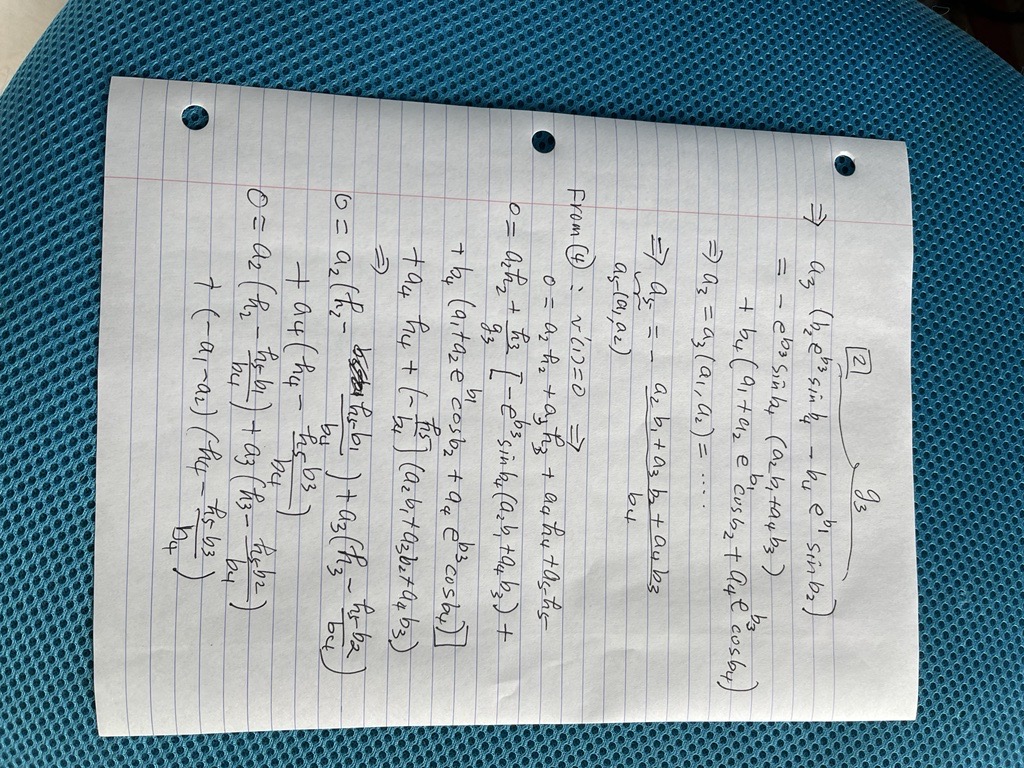 [2] g₃
⇒ a₃ (b₂e^{b₃} sin b₄ - b₄ e^{b₁} sin b₂)
= - e^{b₃} sin b₄ (a₂b₁+a₄b₃)
+ b₄ (a₁+a₂ e^{b₁} cos b₂ + a₄e^{b₃} cos b₄)
⇒ a₃ = a₃(a₁, a₂) = ....
⇒ a₅ = - \frac{a₂ b₁ + a₃ b₂ + a₄ b₃}{b₄}
a₅(a₁,a₂)
From (4) : v'(1)=0 ⇒
0 = a₂ h₂ + a₃ h₃ + a₄ h₄ + a₅ h₅
0 = a₂h₂ + \frac{h₃}{g₃} [-e^{b₃} sin b₄ (a₂b₁+a₄b₃) +
+ b₄ (a₁+a₂ e^{b₁} cos b₂ + a₄ e^{b₃} cos b₄)]
+ a₄ h₄ + (-\frac{h₅}{b₄}) (a₂b₁+a₃b₂+a₄b₃)
⇒
0 = a₂ (h₂ - \frac{h₅b₁}{b₄}) + a₃ (h₃ - \frac{h₅b₂}{b₄})
+ a₄ (h₄ - \frac{h₅b₃}{b₄})
0 = a₂ (h₂ - \frac{h₅b₁}{b₄}) + a₃ (h₃ - \frac{h₅b₂}{b₄})
+ (-a₁-a₂) (h₄ - \frac{h₅b₃}{b₄})